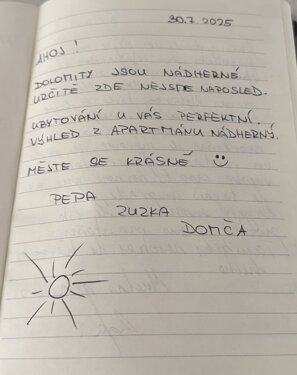 30.7.2025
AHOJ!
DOLOMITY JSOU NÁDHERNÉ
URČITĚ ZDE NEJSME NAPOSLED.
UBYTOVÁNÍ U VÁS PERFEKTNÍ.
VÝHLED Z APARTMÁNU NÁDHERNÝ.
MĚJTE SE KRÁSNĚ ☺
PEPA
ZUZKA
DOMČA